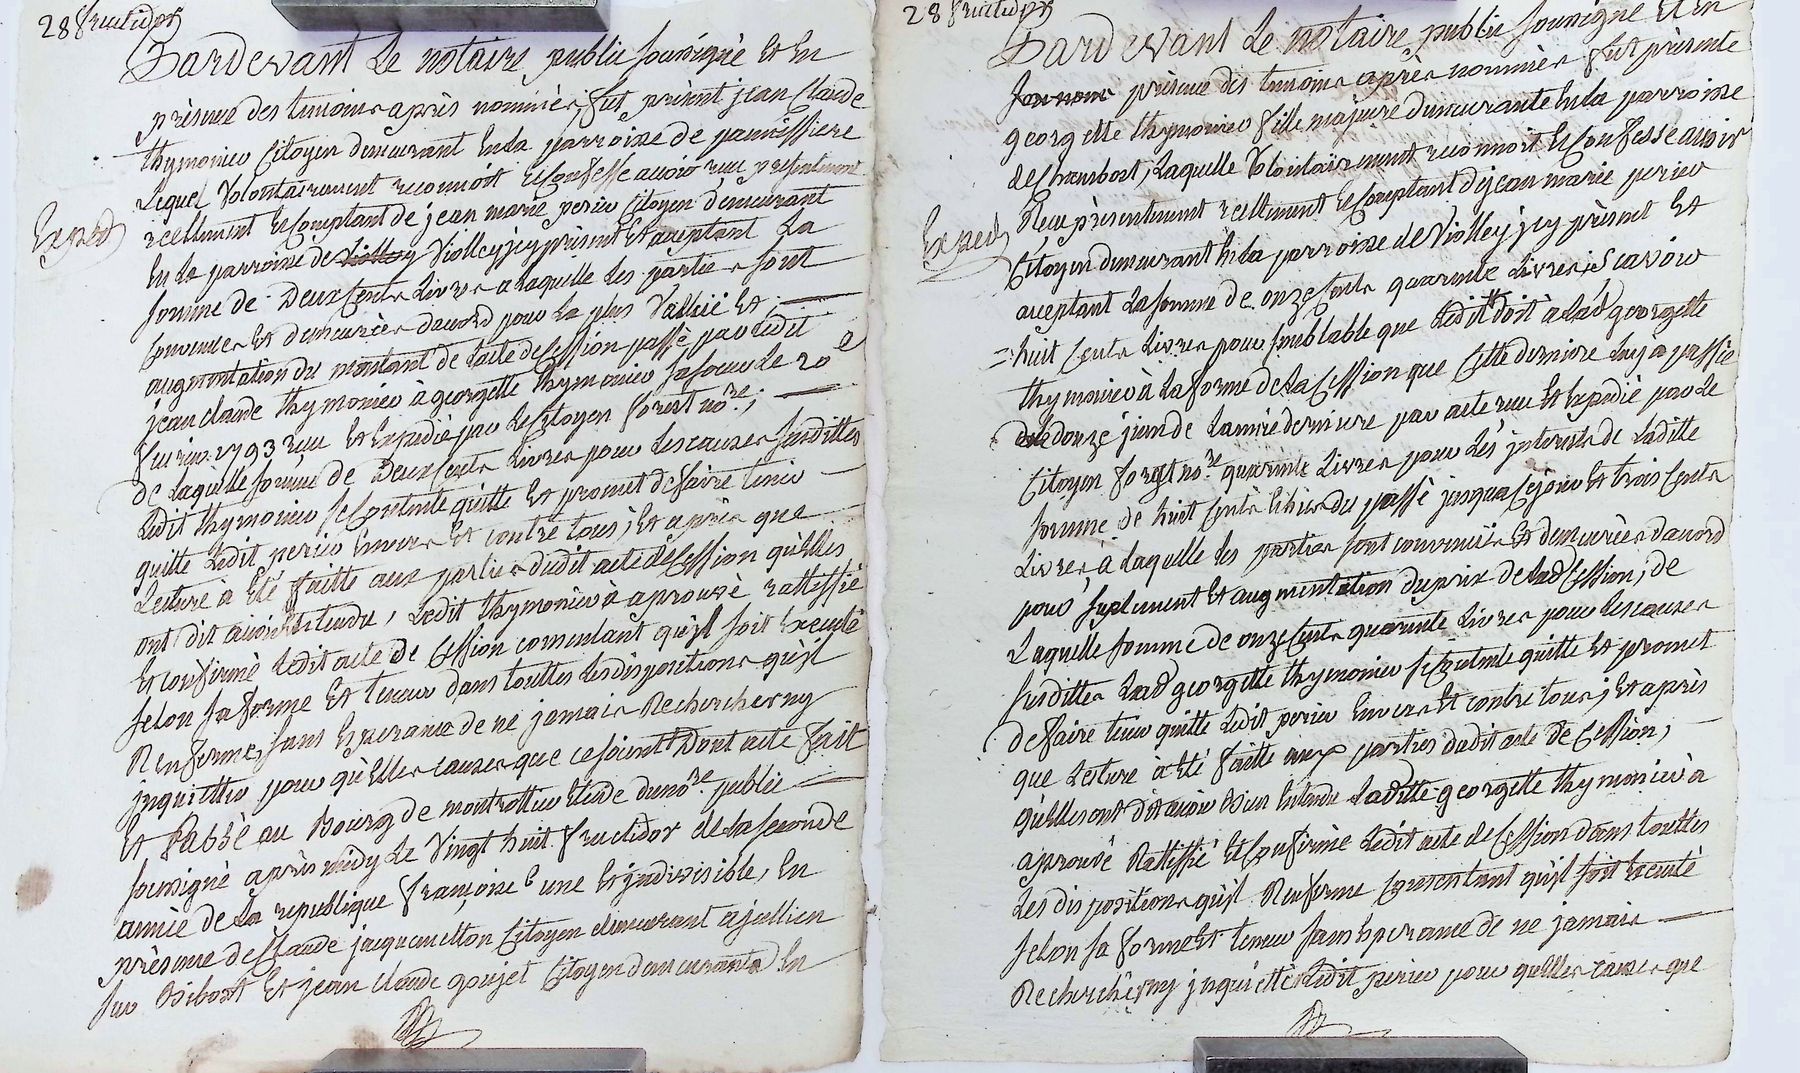 28 fructidor
Pardevant Le notaire public soussigné Et En
présence des temoins après nommés, fut present jean Claude
thymonier Citoyen demeurant En la parroisse de panissiere
Lequel Volontairement reconnoit & Confesse avoir reçu presentement
reellement & Comptant de jean marie perier Citoyen demeurant
Exped
En la parroisse de Violley Violley jcy présent Et aceptant La
somme de Deux Cents Livres a laquelle les parties sont
Convenues Et demeurées dacord pour La plus Vallué Et
augmentation du montant de lacte de Cession passé par ledit
jean claude thymonier à georgette thymonier sa soeur Le 20e
fevrier 1793 reçu Et Expedié par le Citoyen forest nore;
de laquelle somme de Deux Cents Livres pour les causes susdittes
Ledit thymonier se Contente quitte Et promet de faire tenir
quitte Ledit perier Envers Et contre tous; Et après que
Lecture à Eté faitte aux parties dudit acte de Cession qu'Elles
ont dit avoir Entendu, Ledit thymonier à aprouvé rattiffié
Et confirmé Ledit acte de Cession consentant qu'jl soit Executé
selon sa forme Et teneur dans touttes Les dispositions qu'jl
Renferme, sans Esperance de ne jamais Rechercher ny
jnquietter pour qu'Elles causes que ce soient Dont acte fait
Et Passé au Bourg de montrottier Etude du nore public
soussigné après midy Le Vingt huit fructidor de la seconde
année de La republique françoise une Et jndivisible, En
présence de Claude jacquemetton Citoyen demeurant a jullien
sur Bibost Et jean claude goujet Citoyen demeurant En
28 fructidor
Pardevant Le notaire public soussigné Et En
présence des temoins après nommés fut présente
georgette thymonier fille majeure demeurante En la parroisse
de Chambost, Laquelle Volontairement reconnoit & Confesse avoir
Reçu présentement reellement & Comptant de jean marie perier
Exped
Citoyen demeurant En la parroisse de Violley jcy présent Et
aceptant La somme de onze Cents quarente Livres; Scavoir
huit Cents Livres pour semblable que Ledit doit a lad georgette
thymonier à La forme de La Cession que Cette derniere Luy a passée
le douze juin de Lannée derniere par acte reçu Et Expedié par Le
Citoyen forest nore quarente Livres pour Les jnterets de Laditte
somme de huit Cents Livres du passé jusqua Cejour Et trois Cents
Livres à laquelle les parties sont convenues Et demeurées dacord
pour suplement Et augmentation du prix de lad Cession; de
Laquelle somme de onze Cents quarente Livres pour les causes
susdittes Lad georgette thymonier se Contente quitte Et promet
de faire tenir quitte Ledit perier Envers Et contre tous; Et après
que Lecture à Eté faitte aux parties dudit acte de Cession;
qu'Elles ont dit avoir Bien Entendu Laditte georgette thymonier à
aprouvé Rattiffié & Confirmé Ledit acte de Cession dans touttes
Les dispositions qu'jl Renferme Consentant qu'jl soit Executé
selon sa forme Et teneur sans Esperance de ne jamais
Rechercher ny jnquietter Ledit perier pour quElles causes que